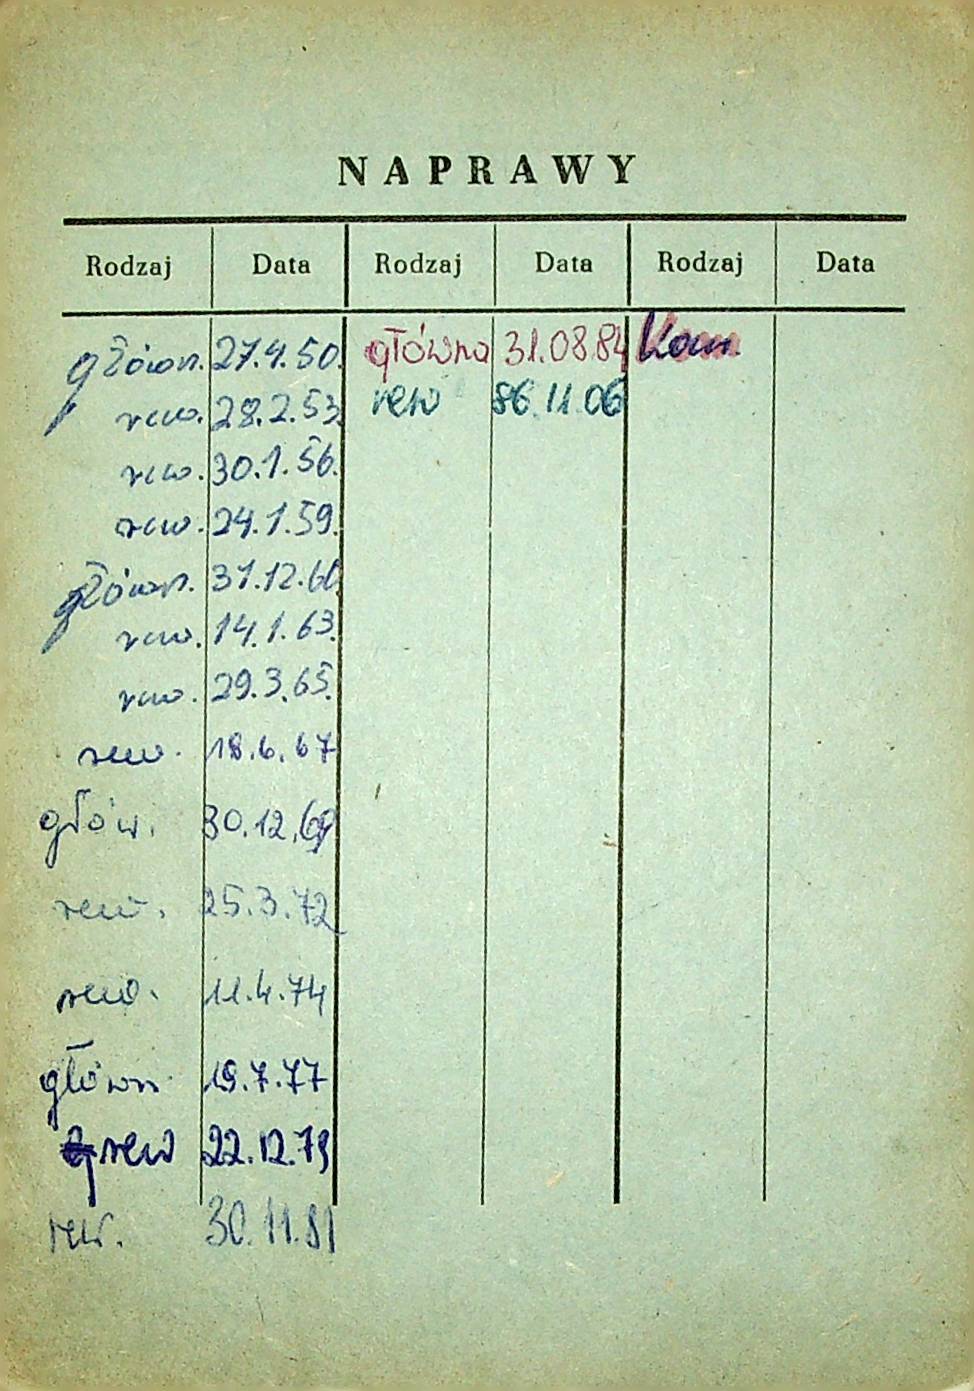 NAPRAWY
Rodzaj Data Rodzaj Data Rodzaj Data
główn. 27.4.50. główna 31.08.84 Kas.
rew. 28.2.53. rew 86.11.06
rew. 30.1.56.
rew. 24.1.59.
główn. 31.12.60
rew. 14.1.63.
rew. 29.3.65.
rew. 18.6.67
głów. 30.12.69
rew. 25.3.72
rew. 11.4.74
główn. 19.7.77
rew 22.12.79
rew. 30.11.81